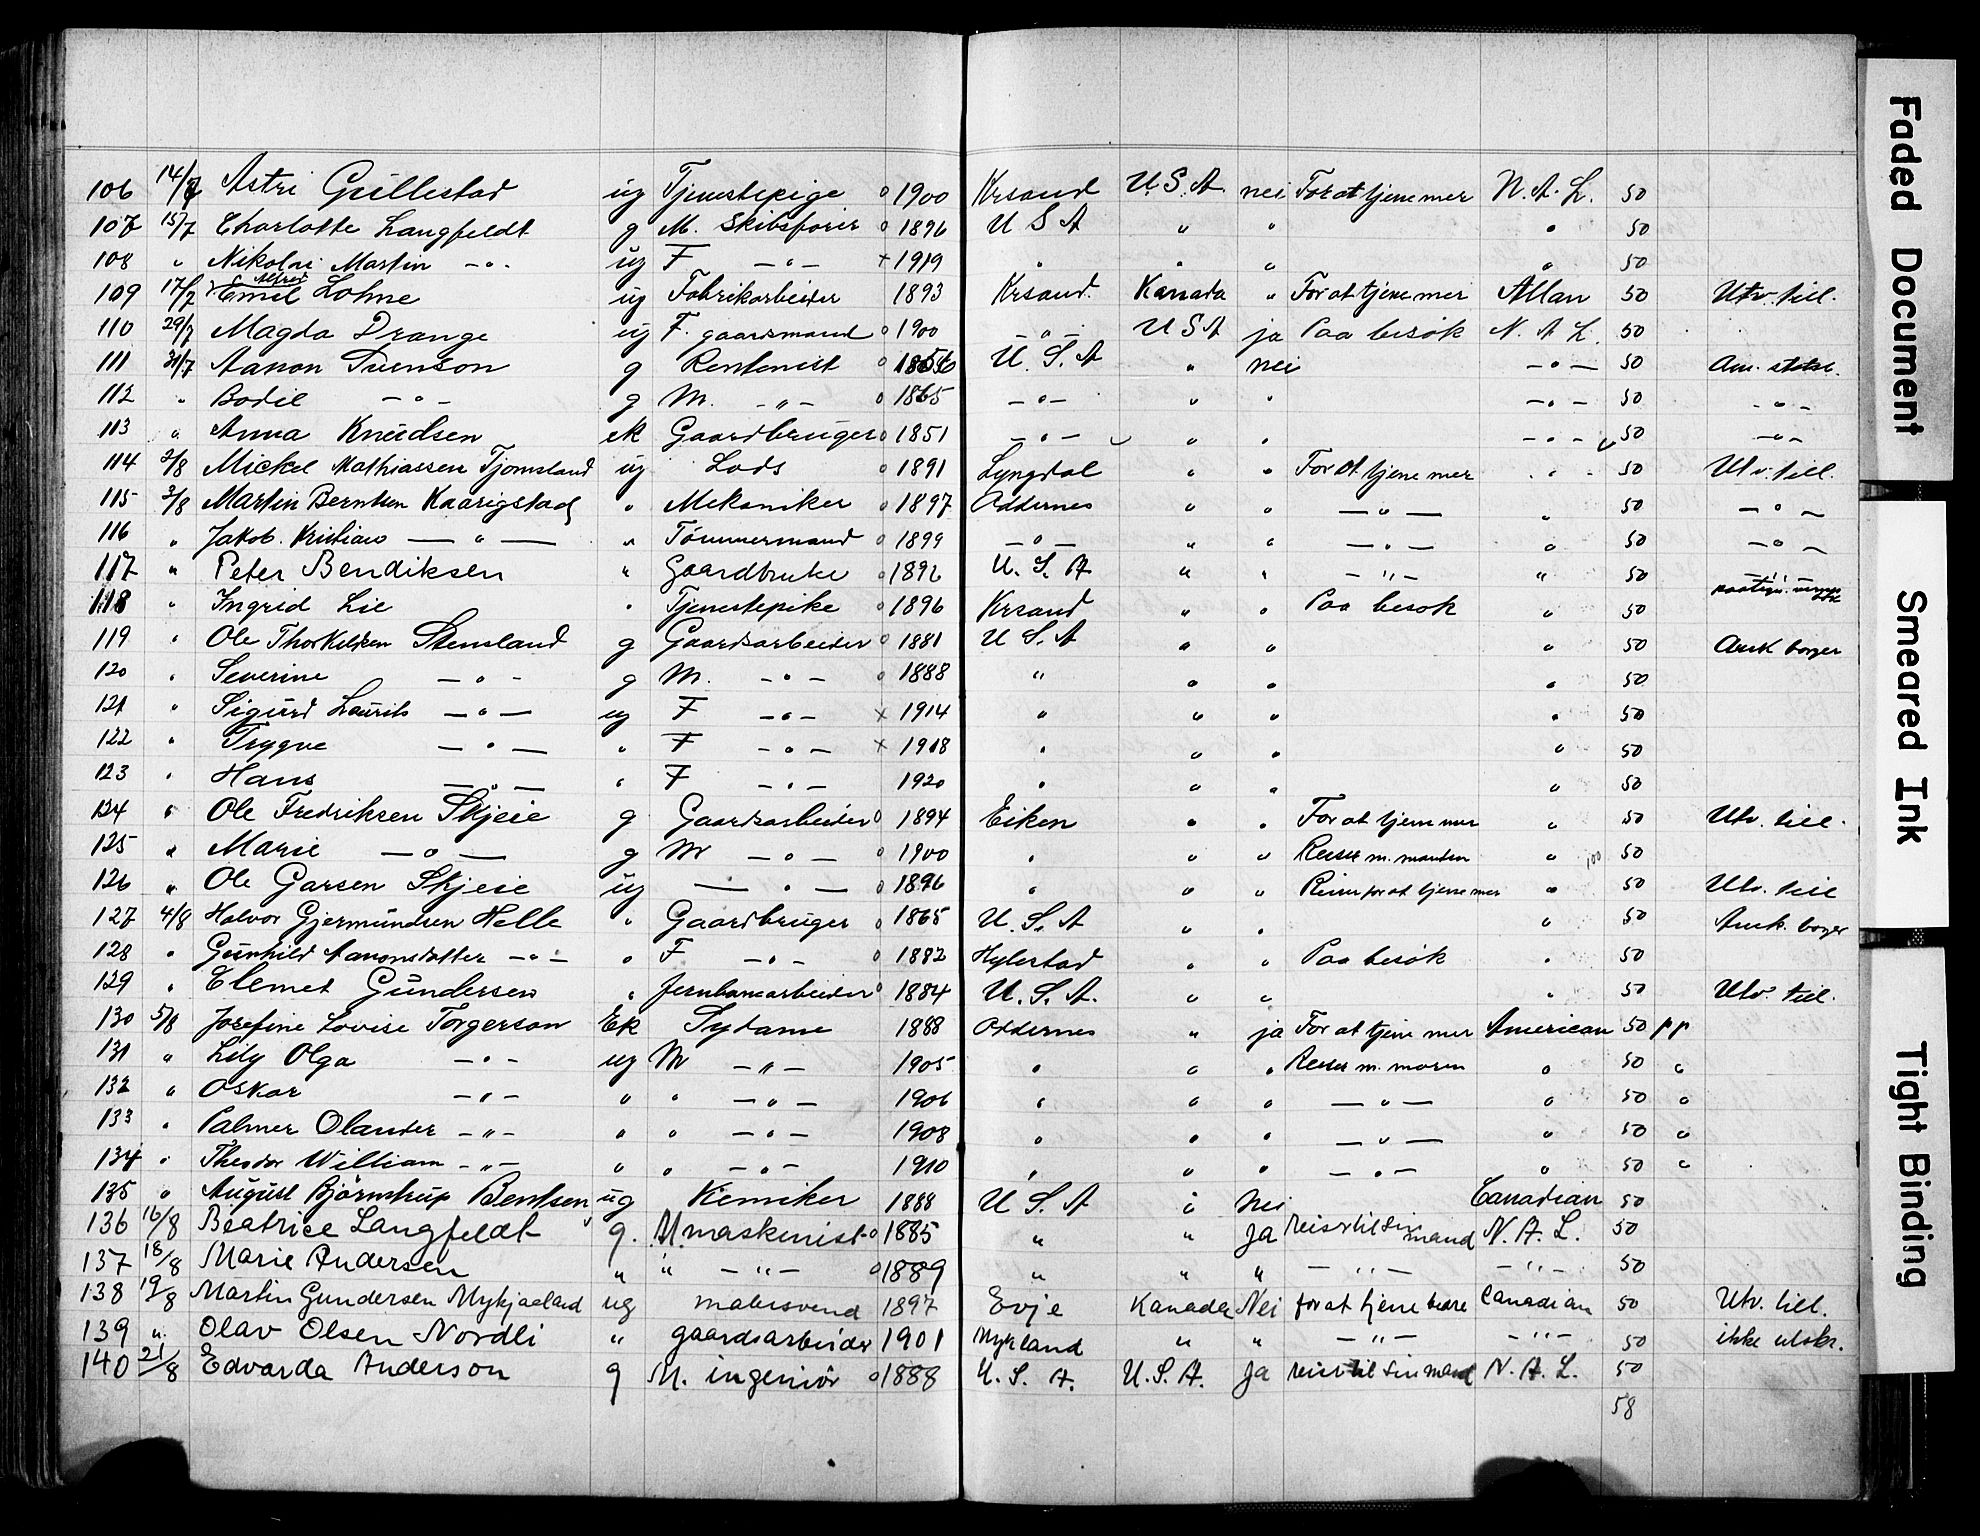 106 14/7 Astri Gullestad ug Tjenestepige o 1900 Krsand U.S.A. nei For at tjene mer N.A.L. 50
107 15/7 Charlotte Langfeldt g M. Skibsfører o 1896 U S A " " " 50
108 " Nikolai Martin - " - ug F - " - + 1919 " " " " 50
109 17/7 Emil Alfred Lohne ug Fabrikarbeider 1893 Krsand. Kanada " For at tjene mer Allan 50 Utv. till.
110 29/7 Magda Drange ug F. gaardmand o 1900 - " - U S A ja Paa besøk N. A L. 50
111 31/7 Aanon Svenson g Rentenist o 1856 U. S. A " nei - " - 50 Am. statsb.
112 " Bodil - " - g M. - " - o 1865 - " - " " - " - 50 - " -
113 " Anna Knudsen ek Gaardbruger o 1851 - " - " " - " - 50 - " -
114 2/8 Mickel Mathiassen Tjomsland ug Lods o 1891 Lyngdal " " For at tjene mer - " - 50 Utv. till.
115 3/8 Martin Berntsen Kaarigstad " Mekaniker o 1897 Oddernes " " - " - " 50 - " -
116 " Jakob Kristian - " - " Tømmermand o 1899 - " - " " - " - " 50 - " -
117 " Peter Bendiksen " Gaardbruke o 1892 U. S. A " " - " - " 50 - " -
118 " Ingrid Lie " Tjenestepike o 1896 Krsand " " Paa besøk " 50
119 " Ole Thorkildsen Stensland g Gaardsarbeider o 1881 U S. A " " " 50 Amk borger
120 " Severine - " - g M. - " - o 1888 " " " " 50
121 " Sigurd Laurits - " - ug F - " - x 1914 " " " " 50
122 " Trygve - " - " F - " - + 1918 " " " " 50
123 " Hans - " - " F - " - 1920 " " " " 50
124 " Ole Fredriksen Skjeie g Gaardsarbeider o 1894 Eiken " " For at tjene mer " 50 Utv. till.
125 " Marie - " - g M - " - o 1900 " " " Reiser m. manden " 100 50
126 " Ole Garsen Skjeie ug - " - o 1896 " " " Reiser for at tjene mer " 50 Utv. till
127 4/8 Halvor Gjermundsen Helle " Gaardbruger o 1865 U. S. A " " " 50 Amk. borger
128 " Gunhild Aanonsdatter - " - " F - " - o 1882 Hylestad " " Paa besøk " 50
129 " Clemet Gundersen " Jernbanearbeider o 1884 U. S. A. " " " 50 Utv. till.
130 5/8 Josefine Lovise Torgerson Ek Sydame 1888 Oddernes " ja For at tjene mer American 50 pp
131 " Lily Olga - " - ug M - " - 1905 " " " Reiser m. moren " 50 "
132 " Oskar - " - " " - " - 1906 " " " - " - " 50 "
133 " Palmer Olander - " - " " - " - 1908 " " " - " - " 50 "
134 " Theodor William - " - " " - " - 1910 " " " - " - " 50 "
135 " August Bjørnstrup Bentsen ug Kemiker 1888 U S. A " Nei Canadian 50
136 16/8 Beatrice Langfeldt g. M. maskinist o 1885 " " Ja reiser til sin mand N. A. L. 50
137 18/8 Marie Andersen " " - " - o 1889 " " " - " - - " - 50
138 19/8 Martin Gundersen Mykjaaland ug malersvend 1897 Evje Kanada Nei for at tjene bedre Canadian 50 Utv. till.
139 " Olav Olsen Nordli " gaardsarbeider 1901 Mykland " " - " - - " - 50 ikke utskr.
140 21/8 Edvarda Anderson g M. ingeniør o 1888 U. S. A. U.S.A. Ja reiser til sin mand N. A. L. 50
58
Faded Document
Smeared Ink
Tight Binding